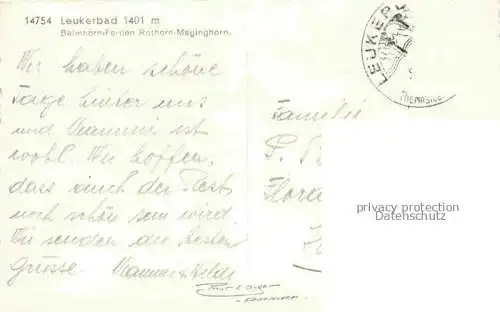 14754 Leukerbad 1401 m
Balmhorn-Ferden Rothorn-Mayinghorn.
LEUKERB
Wir haben schöne
Tage hinter uns
und Mammi ist
wohl. Wir hoffen,
dass auch der Rest
noch schön sein wird.
Wir senden die besten
Grüsse. Mammi & Hilde
Familie
P. B
Flora
privacy protection
Datenschutz